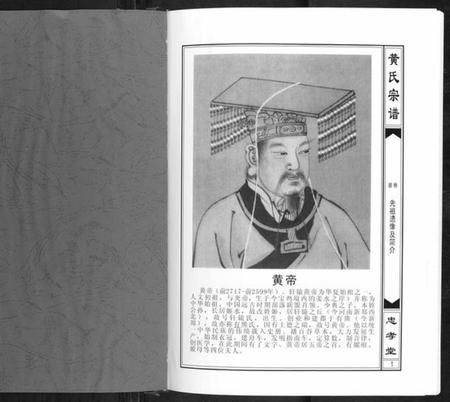 黄氏宗谱
首卷
先祖遗像及简介
忠孝堂
1
黄帝
黄帝（前2717-前2599年），轩辕黄帝为华夏始祖之一，
人文初祖，与炎帝，生于今宝鸡境内的姜水之岸）并称为
中华始祖，中国远古时期部落联盟首领。少典之子，本姓
公孙，长居姬水，故改姓姬，居轩辕之丘（今河南新郑西
北），故号轩辕氏，出生、创业和建都于有熊（今新
郑），故亦称有熊氏，因有土德之瑞，故号黄帝。他以统
一中华民族的伟绩载入史册。播百谷草木，大力发展生
产，始制衣冠，建造舟车，发明指南车，定算数，制音律，
创医学，在此期间有了文字。黄帝居五帝之首，有嫘祖、
嫫母等四位夫人。